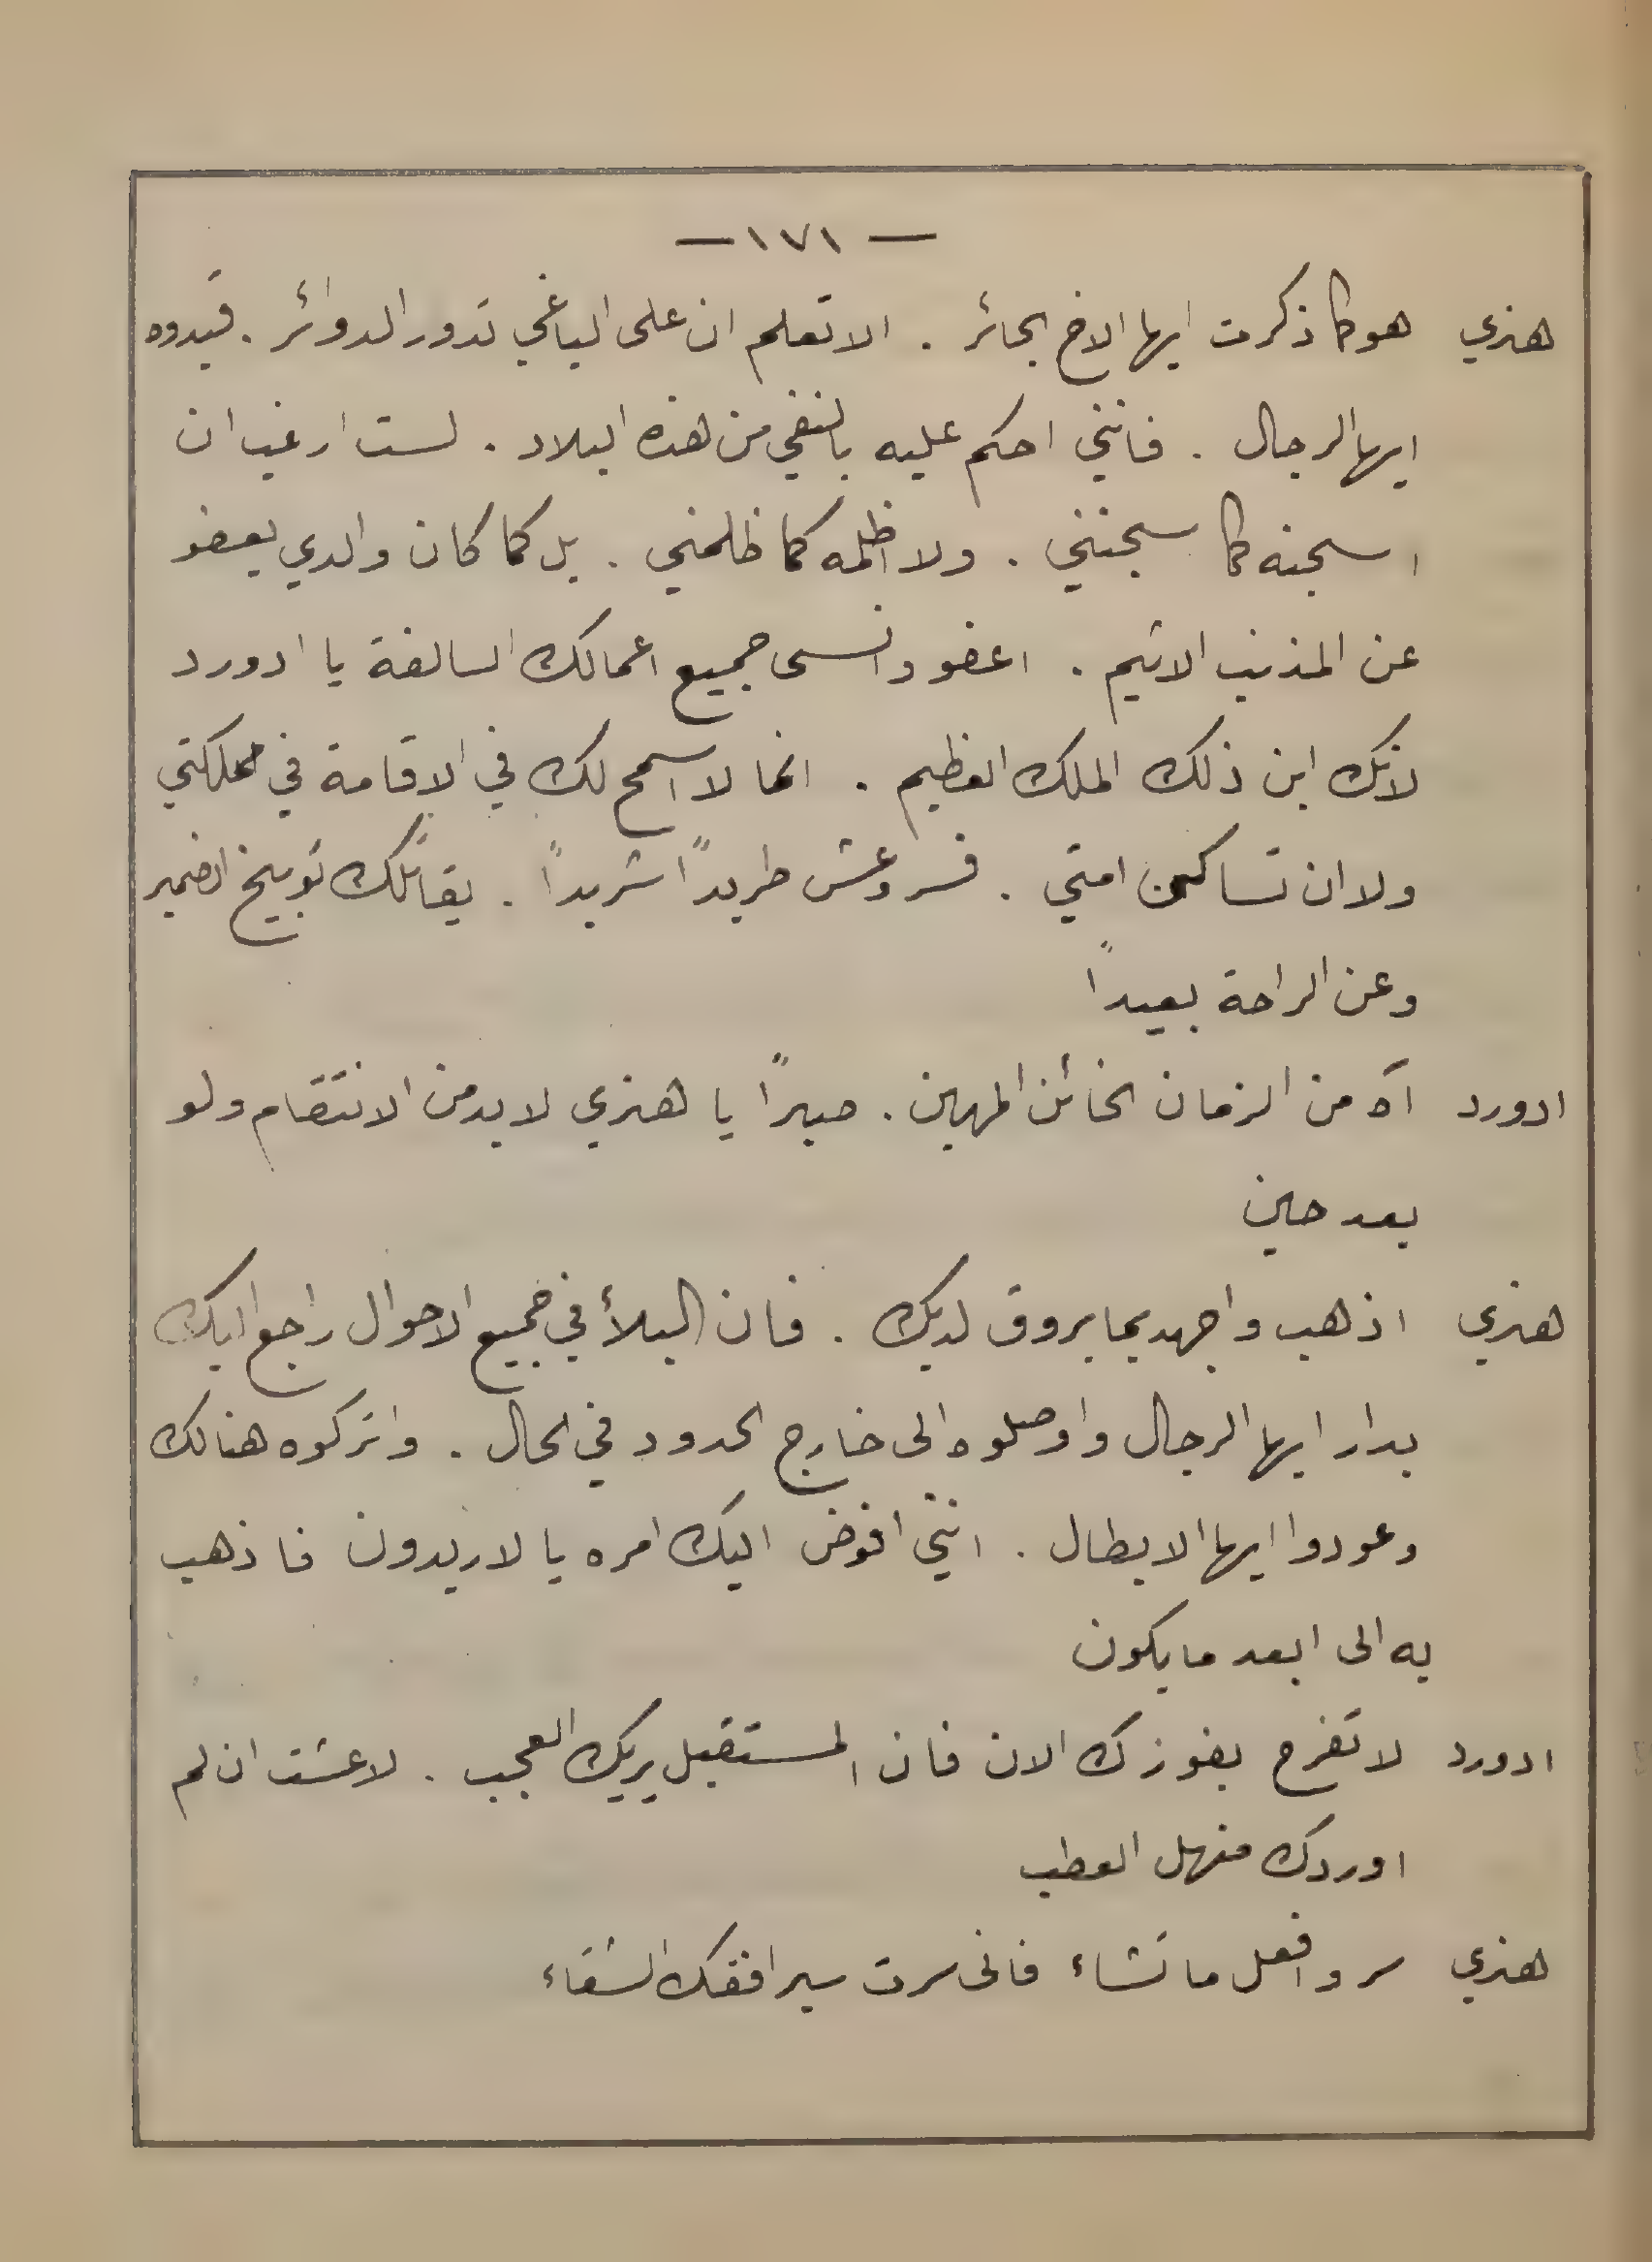 — ١٧١ —
هنري هو كما ذكرت ايها الاخ الجائر . الا تعلم ان على الباغي تدور الدوائر . قيدوه
ايها الرجال . فانني احكم عليه بالنفي من هذه البلاد . لست ارغب ان
اسجنه كما سجنني . ولا اظلمه كما ظلمني . بل كما كان والدي يعفو
عن المذنب الاثيم . اعفو وانسى جميع اعمالك السالفة يا ادورد
لانك ابن ذلك الملك العظيم . انما لا اسمح لك في الاقامة في مملكتي
ولا ان تساكن امتي . فسر وعش طريدًا شريدًا . يقاتلك توبيخ الضمير
وعن الراحة بعيدًا
ادورد آه من الزمان الخائن المهين . صبرًا يا هنري لا بد من الانتقام ولو
بعد حين
هنري اذهب واجهد بما يروق لديك . فان البلأ في جميع الاحوال راجع اليك
بدار ايها الرجال واوصلوه الى خارج الحدود في الحال . واتركوه هنالك
وعودوا ايها الابطال . انني افوض اليك امره يا لاريدون فاذهب
به الى ابعد ما يكون
ادورد لا تفرح بفوزك الان فان المستقبل يريك العجب . لا عشت ان لم
اوردك منهل العطب
هنري سر وافعل ما تشاء فانى سرت سيرافقك الشقاء